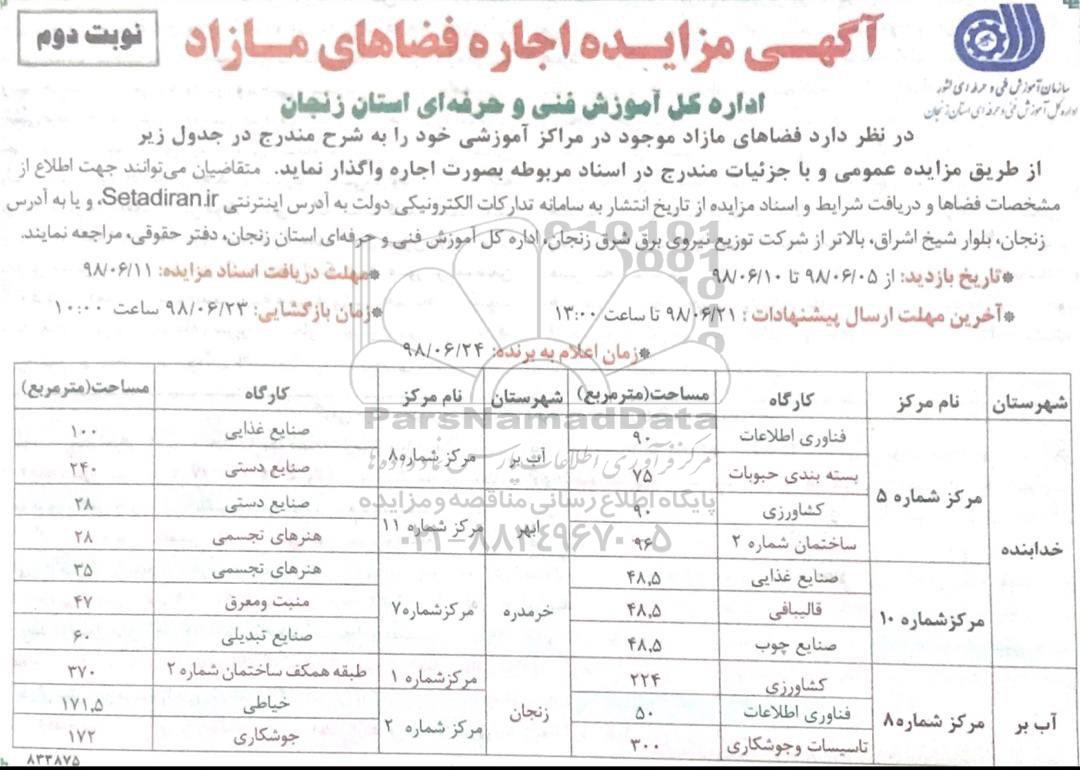 آگهی مزایده اجاره فضاهای مازاد
نوبت دوم
سازمان آموزش فنی و حرفه ای کشور
اداره کل آموزش فنی و حرفه ای استان زنجان
اداره کل آموزش فنی و حرفه‌ای استان زنجان
در نظر دارد فضاهای مازاد موجود در مراکز آموزشی خود را به شرح مندرج در جدول زیر
از طریق مزایده عمومی و با جزئیات مندرج در اسناد مربوطه بصورت اجاره واگذار نماید. متقاضیان می‌توانند جهت اطلاع از
مشخصات فضاها و دریافت شرایط و اسناد مزایده از تاریخ انتشار به سامانه تدارکات الکترونیکی دولت به آدرس اینترنتی Setadiran.ir، و یا به آدرس
زنجان، بلوار شیخ اشراق، بالاتر از شرکت توزیع نیروی برق شرق زنجان، اداره کل آموزش فنی و حرفه‌ای استان زنجان، دفتر حقوقی، مراجعه نمایند.
*تاریخ بازدید: از ۹۸/۰۶/۰۵ تا ۹۸/۰۶/۱۰ *مهلت دریافت اسناد مزایده: ۹۸/۰۶/۱۱
*آخرین مهلت ارسال پیشنهادات: ۹۸/۰۶/۲۱ تا ساعت ۱۳:۰۰ *زمان بازگشایی: ۹۸/۰۶/۲۳ ساعت ۱۰:۰۰
*زمان اعلام به برنده: ۹۸/۰۶/۲۴
شهرستان نام مرکز کارگاه مساحت(مترمربع) شهرستان نام مرکز کارگاه مساحت(مترمربع)
خدابنده مرکز شماره ۵ فناوری اطلاعات ۹۰ آب بر مرکز شماره۸ صنایع غذایی ۱۰۰
بسته بندی حبوبات ۷۵ صنایع دستی ۲۴۰
کشاورزی ۹۰ ابهر مرکز شماره ۱۱ صنایع دستی ۲۸
ساختمان شماره ۲ ۹۶ هنرهای تجسمی ۲۸
مرکزشماره ۱۰ صنایع غذایی ۴۸,۵ خرمدره مرکزشماره۷ هنرهای تجسمی ۳۵
قالیبافی ۴۸,۵ منبت ومعرق ۴۷
صنایع چوب ۴۸,۵ صنایع تبدیلی ۶۰
آب بر مرکز شماره۸ کشاورزی ۲۲۴ زنجان مرکزشماره ۱ طبقه همکف ساختمان شماره ۲ ۳۷۰
فناوری اطلاعات ۵۰ مرکز شماره ۲ خیاطی ۱۷۱,۵
تاسیسات وجوشکاری ۳۰۰ جوشکاری ۱۷۲
۸۳۳۸۷۵
ParsNamadData
پایگاه اطلاع رسانی مناقصه و مزایده
۰۲۱-۸۸۳۴۹۶۷۰-۵